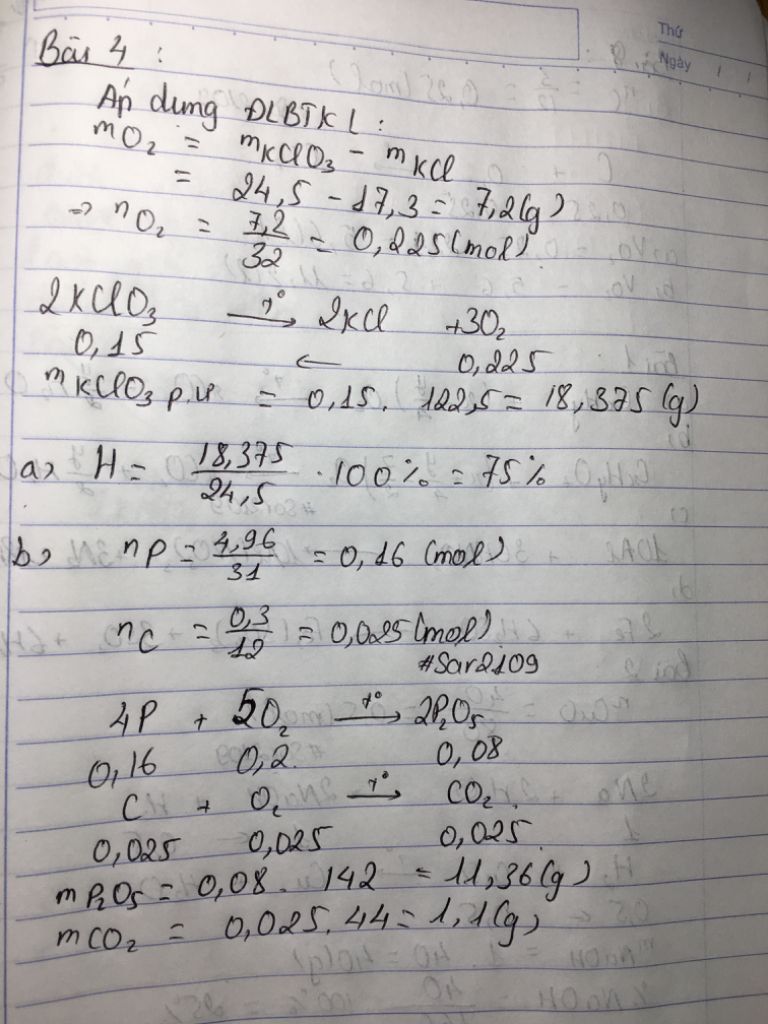 Thứ
Ngày / /
Bài 4 :
Áp dung ĐLBTKL :
mO₂ = mKClO₃ - mKCl
= 24,5 - 17,3 = 7,2(g)
=> nO₂ = 7,2/32 = 0,225(mol)
2KClO₃ —t°→ 2KCl +3O₂
0,15 ← 0,225
mKClO₃ p.ư = 0,15. 122,5 = 18,375 (g)
a> H = 18,375/24,5 . 100% = 75%
b> nP = 4,96/31 = 0,16 (mol)
nC = 0,3/12 = 0,025(mol)
#Sar2109
4P + 5O₂ —t°→ 2P₂O₅
0,16 0,2 0,08
C + O₂ —t°→ CO₂
0,025 0,025 0,025
mP₂O₅ = 0,08 . 142 = 11,36(g)
mCO₂ = 0,025.44 = 1,1(g)